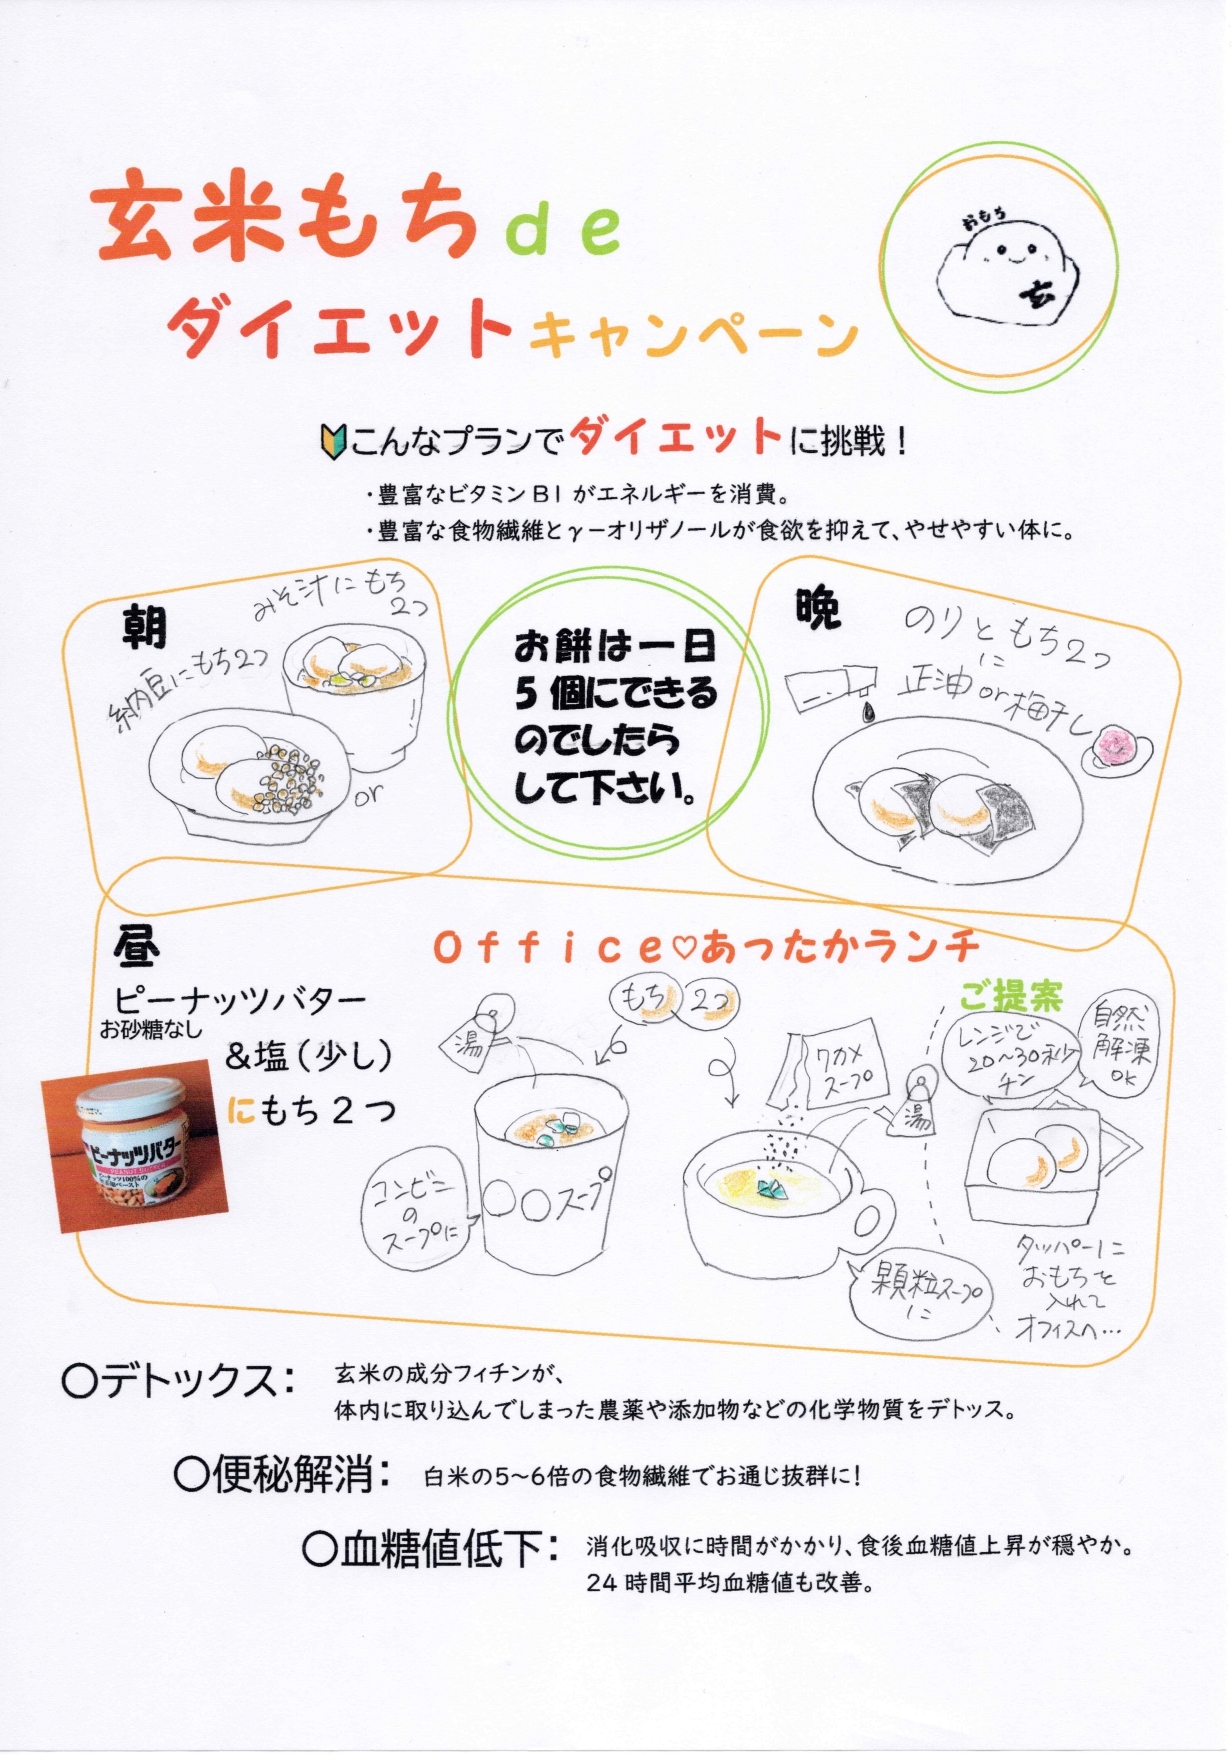 玄米もちde
ダイエットキャンペーン
おもち
玄
こんなプランでダイエットに挑戦！
・豊富なビタミンB1がエネルギーを消費。
・豊富な食物繊維とγーオリザノールが食欲を抑えて、やせやすい体に。
朝
みそ汁にもち
2つ
納豆にもち2つ
or
お餅は一日
5個にできる
のでしたら
して下さい。
晩
のりともち2つ
に
正油or梅干し
昼
ピーナッツバター
お砂糖なし
&塩（少し）
にもち2つ
ピーナッツバター
PEANUT BUTTER
ピーナッツ100%の
Office♡あったかランチ
もち 2つ
湯
コンビニ
の
スープに
〇〇スープ
ワカメ
スープ
湯
顆粒スープ
に
ご提案
レンジで
20〜30秒
チン
自然
解凍
OK
タッパーに
おもちを
入れて
オフィスへ…
〇デトックス：
玄米の成分フィチンが、
体内に取り込んでしまった農薬や添加物などの化学物質をデトッス。
〇便秘解消：
白米の5〜6倍の食物繊維でお通じ抜群に！
〇血糖値低下：
消化吸収に時間がかかり、食後血糖値上昇が穏やか。
24時間平均血糖値も改善。